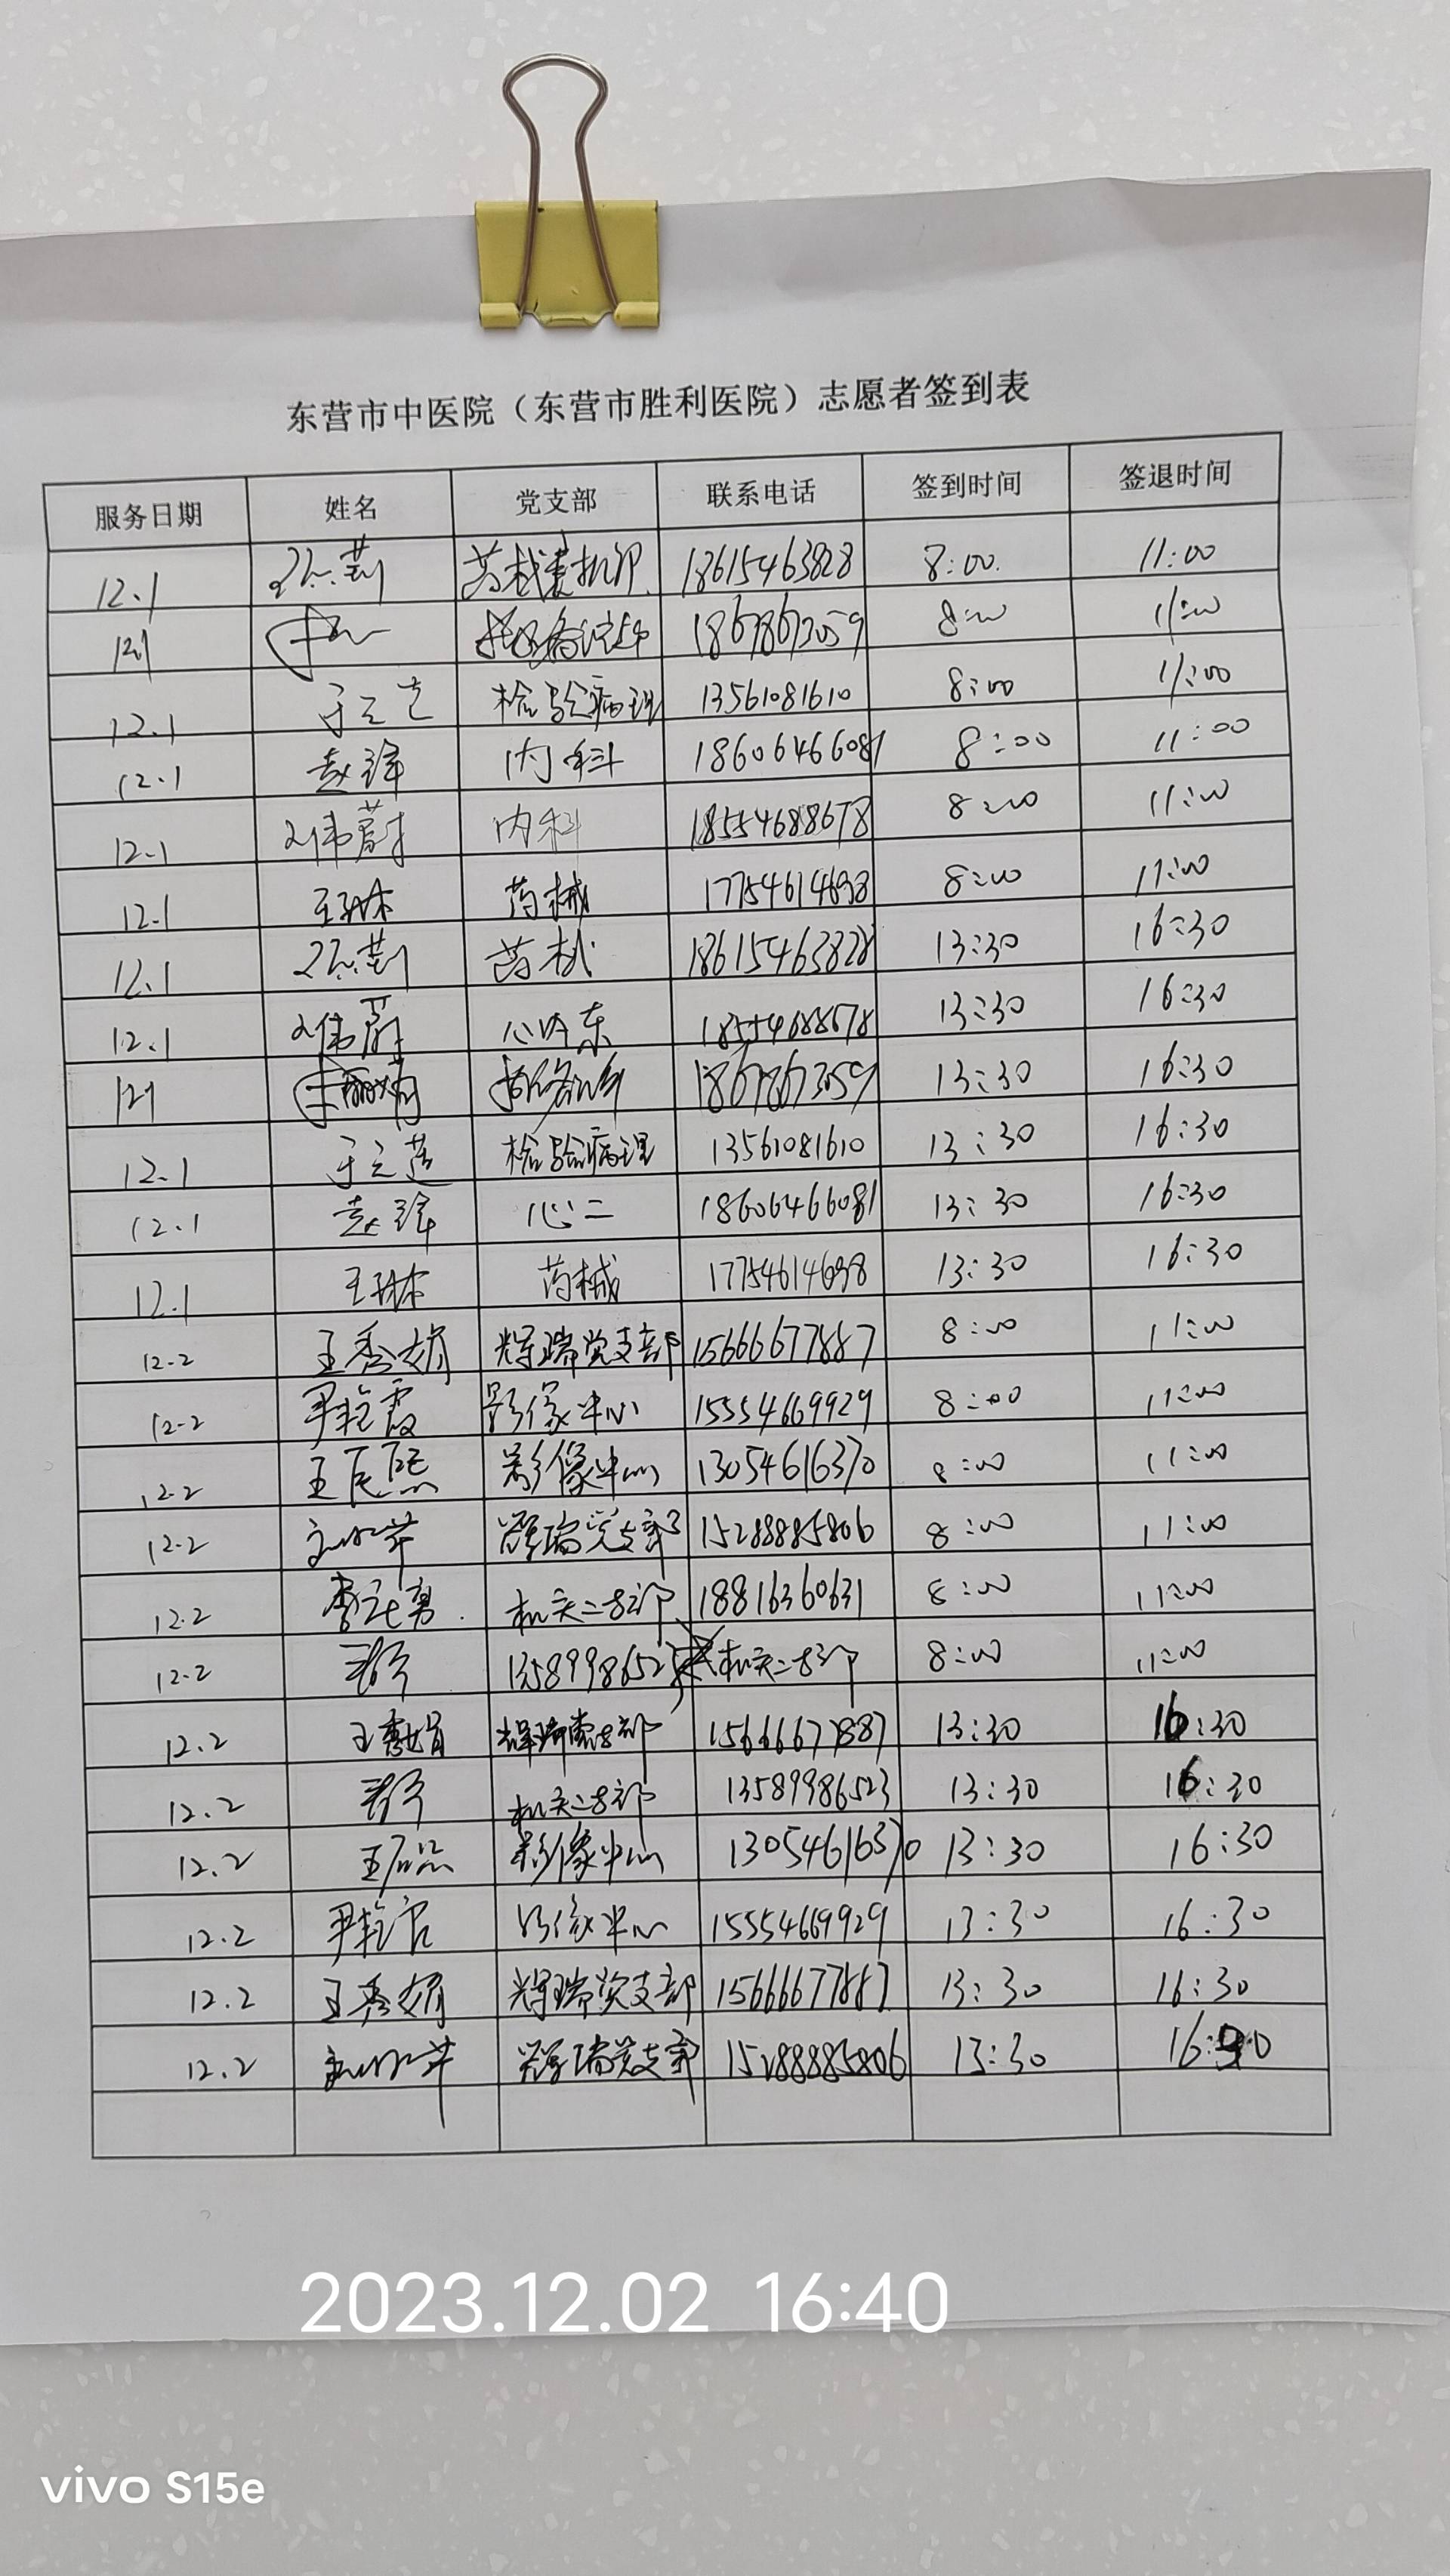 东营市中医院（东营市胜利医院）志愿者签到表
服务日期 姓名 党支部 联系电话 签到时间 签退时间
12.1 18615463828 8:00 11:00
12.1 18678673059 8:00 11:00
12.1 检验病理 13561081610 8:00 11:00
12.1 赵锋 内科 18606466081 8:00 11:00
12.1 刘伟蔚 内科 18554688678 8:00 11:00
12.1 王琳 药械 17754614698 8:00 11:00
12.1 药械 18615463828 13:30 16:30
12.1 刘伟蔚 心内东 18554688678 13:30 16:30
12.1 18678673059 13:30 16:30
12.1 于云莲 检验病理 13561081610 13:30 16:30
12.1 赵锋 心二 18606466081 13:30 16:30
12.1 王琳 药械 17754614698 13:30 16:30
12.2 王秀娟 辉瑞党支部 15666677887 8:00 11:00
12.2 尹艳霞 影像中心 15554669929 8:00 11:00
12.2 影像中心 13054616370 8:00 11:00
12.2 辉瑞党支部 15288885806 8:00 11:00
12.2 机关二支部 18816360631 8:00 11:00
12.2 13589986523 机关二支部 8:00 11:00
12.2 15666677887 13:30 16:30
12.2 机关二支部 13589986523 13:30 16:30
12.2 影像中心 13054616370 13:30 16:30
12.2 影像中心 15554669929 13:30 16:30
12.2 王秀娟 辉瑞党支部 15666677887 13:30 16:30
12.2 辉瑞党支部 15288885806 13:30
2023.12.02 16:40
vivo S15e